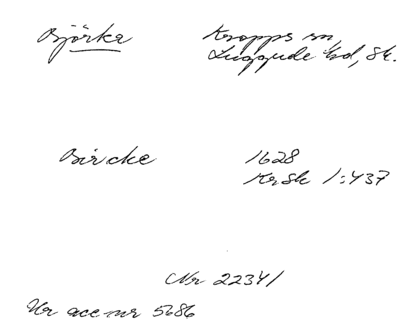 Björka
Kropps sn
Luggude hd, Sk.
Bircke
1628
KrSk 1:437
Nr 22341
Ur acc nr 5686